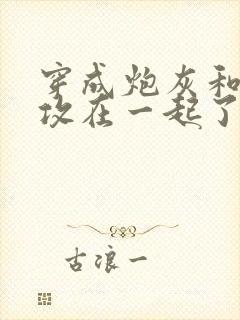 穿成炮灰和
攻在一起了
古浪一